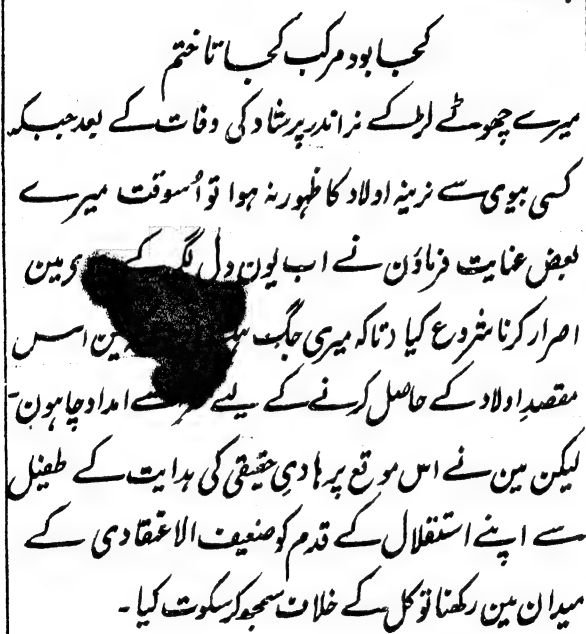 کجا بود مرکب کجا تا ختم
میرے چھوٹے لڑکے نراندر پرشاد کی وفات کے بعد جبکہ
کسی بیوی سے نرینہ اولاد کا ظہور نہ ہوا تو اُسوقت میرے
بعض عنایت فرماؤن نے اب یون دل مین
اصرار کرنا شروع کیا دتاکہ میری اس
مقصدِ اولاد کے حاصل کرنے کے لیے سے امداد چاہون۔
لیکن مین نے اس موقع پر ہادیِ حقیقی کی ہدایت کے طفیل
سے اپنے استقلال کے قدم کو ضعیف الاعتقادی کے
میدان مین رکھنا توکل کے خلاف سمجھکر سکوت کیا۔